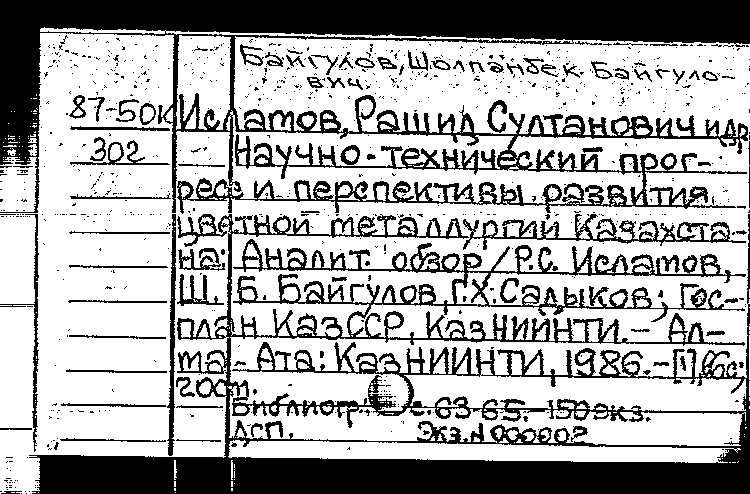 Байгулов, Шолпанбек Байгуло-
вич.
87-50К Исламов, Рашид Султанович и др.
302 Научно-технический прог-
ресс и перспективы развития
цветной металлургии Казахста-
на: Аналит. обзор / Р.С. Исламов,
Ш. Б. Байгулов, Г.Х. Садыков; Гос-
план КазССР, КазНИИНТИ. - Ал-
ма-Ата: КазНИИНТИ, 1986. - [1],
20см.
Библиогр.: с. 63-65. - 150 экз.
ДСП. Экз. N 000002